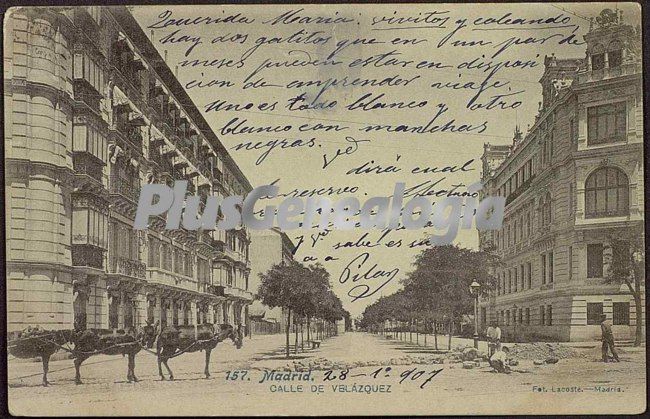 Querida Maria. vivitos y coleando
hay dos gatitos que en un par de
meses pueden estar en disposi
cion de emprender viage.
Uno es todo blanco y otro
blanco con manchas
negras. Vd dirá cual
la reservo. Afectuo
PlusGenealogía
y Vd sabe es su
Pilar
157. Madrid. 28-1º-907
CALLE DE VELÁZQUEZ
Fot. Lacoste.—Madrid.